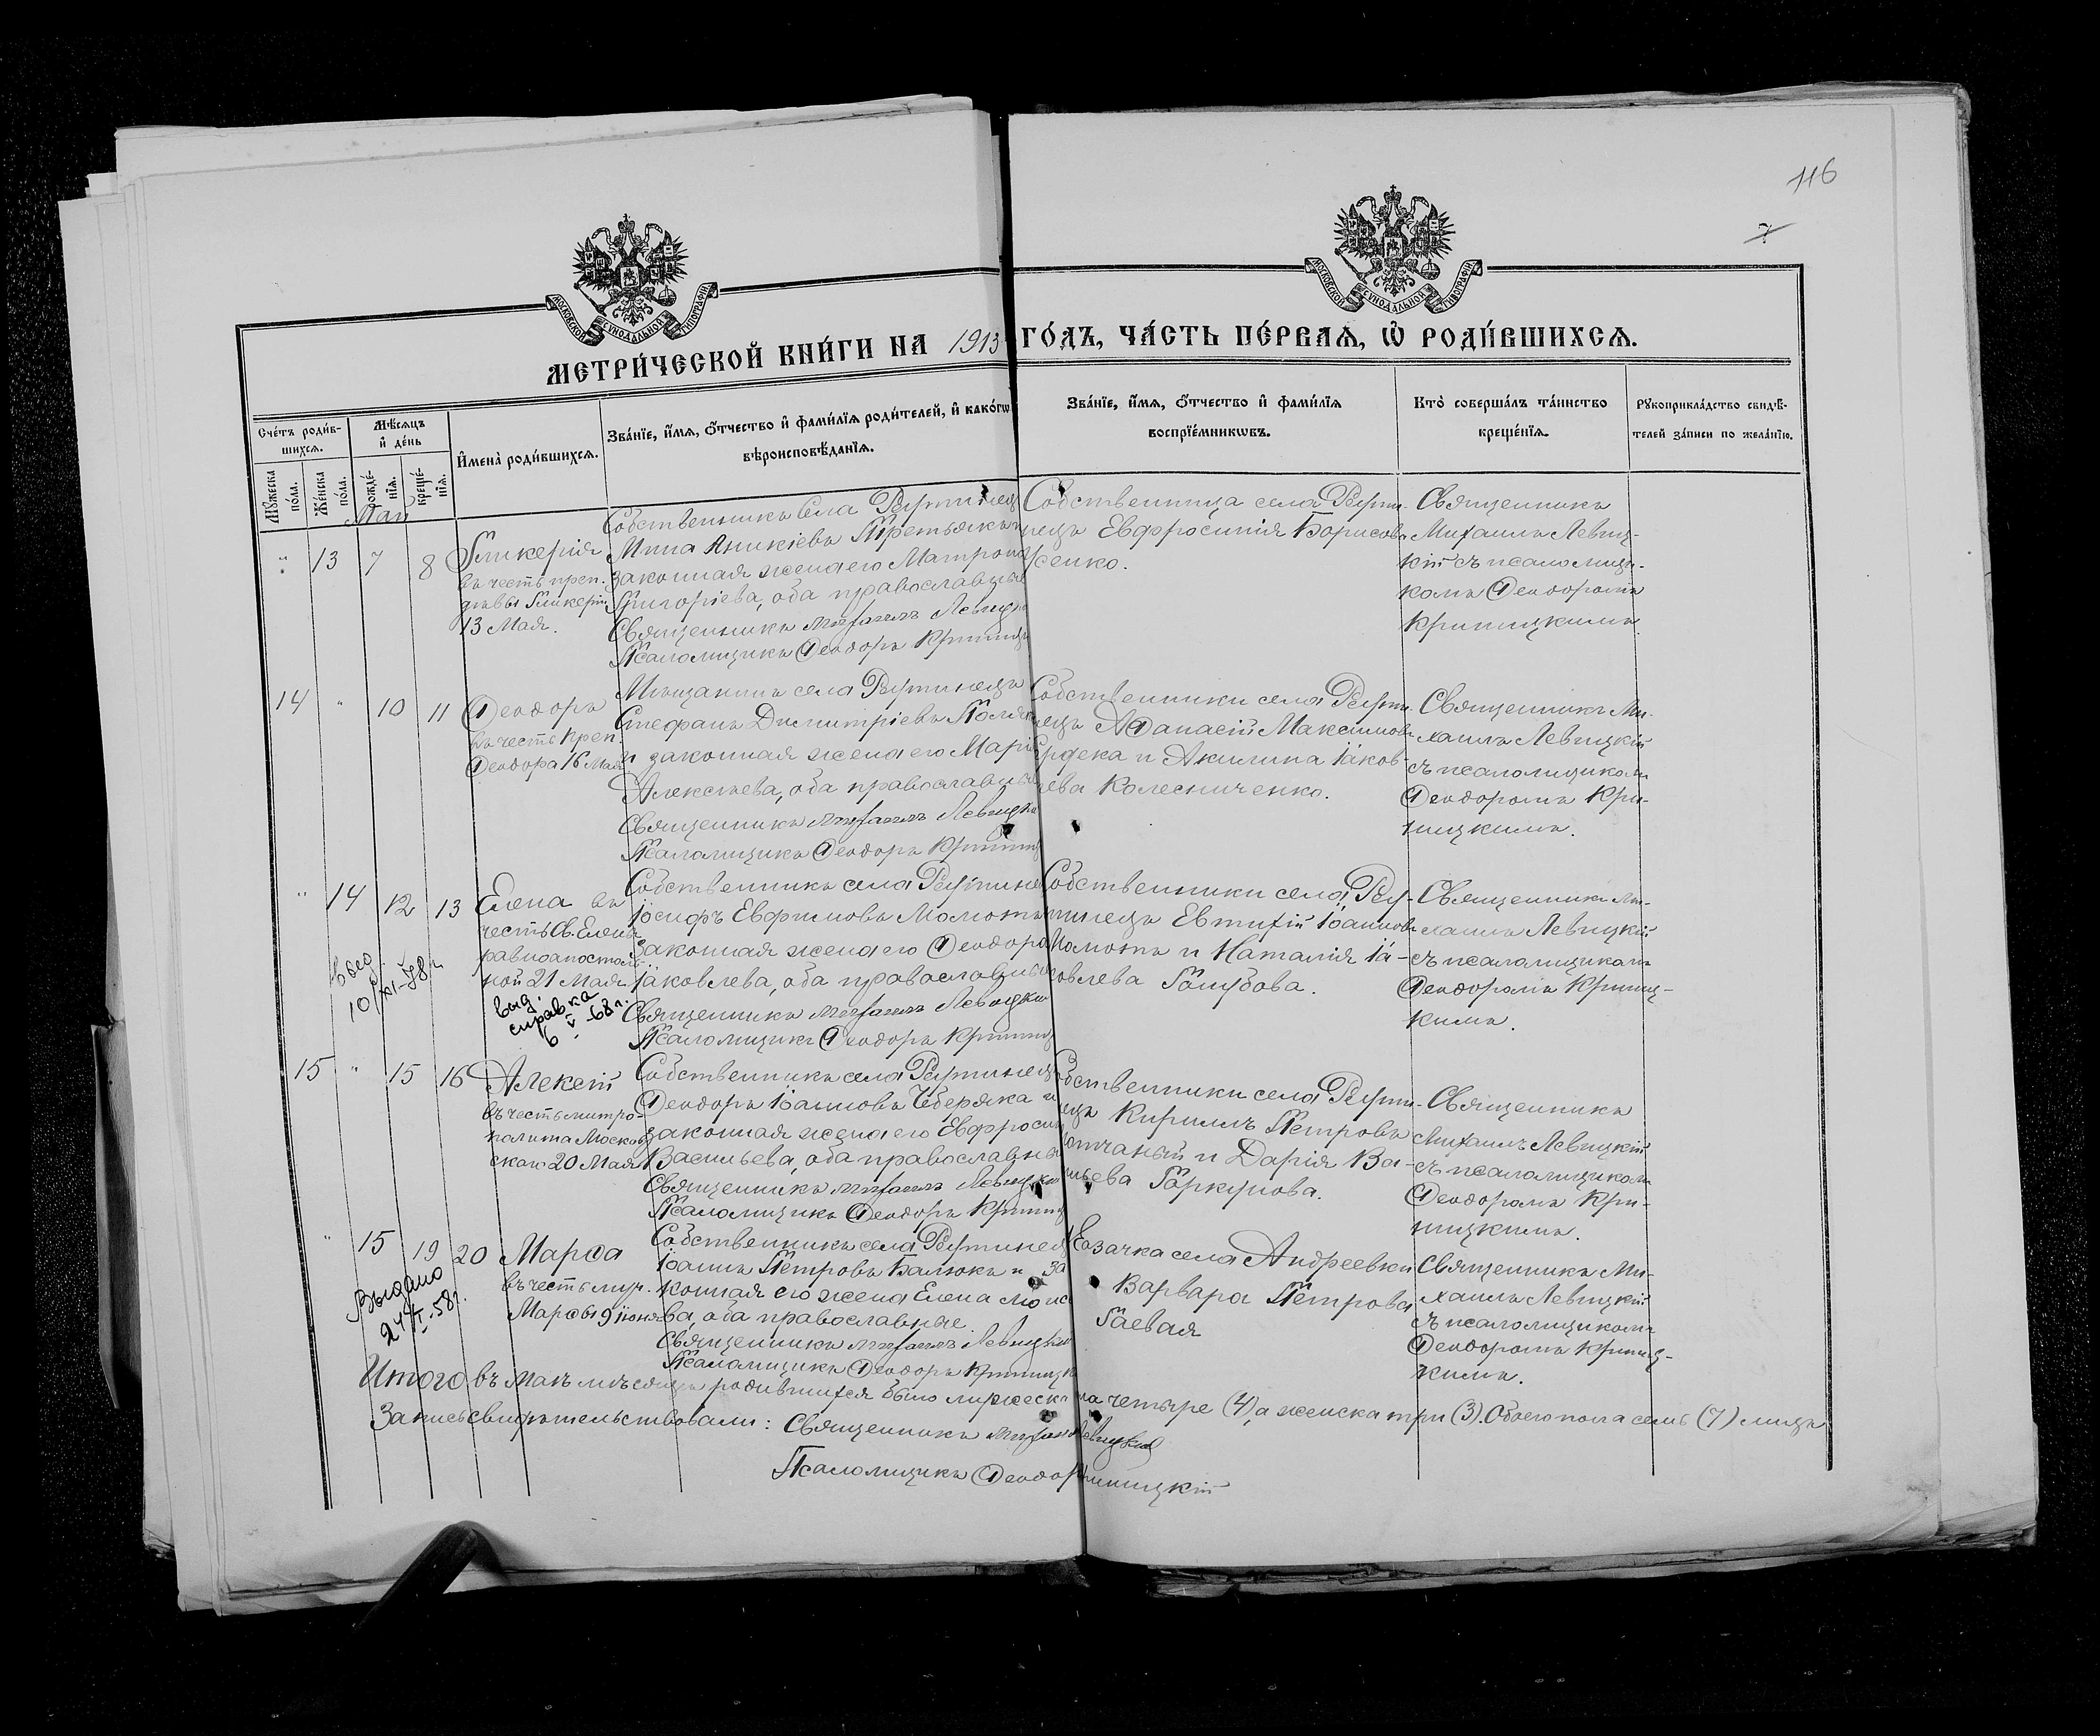 116
7
МОСКОВСКОЙ СУНОДАЛЬНОЙ ТИПОГРАФІИ
МОСКОВСКОЙ СУНОДАЛЬНОЙ ТИПОГРАФІИ
МЕТРИ́ЧЕСКОЙ КНИ́ГИ НА 1913 ГО́ДЪ, ЧА́СТЬ ПЕ́РВАѦ, Ѡ҆ РОДИ́ВШИХСѦ.
Сче́тъ роди́в-
шихсѧ.
Мѣ́сѧцъ
и҆ де́нь
И҆мена̀ роди́вшихсѧ.
Зва́нїе, и҆́мѧ, ѻ҆́тчество и҆ фами́лїѧ роди́телей, и҆ како́гѡ
вѣроисповѣ́данїѧ.
Зва́нїе, и҆́мѧ, ѻ҆́тчество и҆ фами́лїѧ
воспрїе́мникѡвъ.
Кто̀ соверша́лъ та́инство
креще́нїѧ.
Рꙋкоприкла́дство свидѣ́-
телей за́писи по жела́нїю.
Мꙋ́жеска
по́ла.
Же́нска
по́ла.
рожде́-
нїѧ.
креще́-
нїѧ.
Май
" 13 7 8
Гликерія
въ честь преп.
дѣвы Гликеріи
13 Мая.
Собственникъ села Решетинецъ
Мина Аникіевъ Третьякъ и
законная жена его Матрона
Григоріева, оба православные
Священникъ Михаилъ Левицкій
Псаломщикъ Ѳеодоръ Криниц
Собственница села
нецъ Евфросинія Борисова
сенко.
Священникъ
Михаилъ Левиц-
кій съ псаломщи-
комъ Ѳеодоромъ
Криницкимъ.
14 " 10 11
Ѳеодоръ
въ честь преп.
Ѳеодора 16 Мая
Мѣщанинъ села
Стефанъ Димитріевъ Поляк
и законная жена его Марія
Алексѣева, оба православные
Священникъ Михаилъ Левицкій
Псаломщикъ Ѳеодоръ Криниц
Собственники села
нецъ Аѳанасій Максимовъ
Ердека и Акилина Іаков-
лева Колесниченко.
Священникъ Ми-
хаилъ Левицкій
съ псаломщикомъ
Ѳеодоромъ Кри-
ницкимъ.
" 14 12 13
Елена въ
честь Св. Елены
равноапостоль-
ной 21 Мая.
выд.
10/XI-78 г.
выд.
справка
6 V-68 г.
Собственникъ села
Іосифъ Евфимовъ Момотъ
законная жена его Ѳеодора
Іаковлева, оба православные
Священникъ Михаилъ Левицкій
Псаломщикъ Ѳеодоръ Криниц
Собственники села
тинецъ Евтихій Іоанновъ
Момотъ и Наталія Іа-
ковлева Голубова.
Священникъ Ми-
хаилъ Левицкій
съ псаломщикомъ
Ѳеодоромъ Криниц-
кимъ.
15 " 15 16
Алексій
въ честь митро-
полита Москов-
скаго 20 Мая
Собственникъ села
Ѳеодоръ Іоанновъ Чеберяка и
законная жена его Евфросин
Васильева, оба православные
Священникъ Михаилъ Левицкій
Псаломщикъ Ѳеодоръ Криниц
Собственники села
нецъ Кириллъ Петровъ
и Дарія Ва-
сильева Горкунова.
Священникъ
Михаилъ Левицкій
съ псаломщикомъ
Ѳеодоромъ Кри-
ницкимъ.
" 15 19 20
Марѳа
въ честь муч.
Марѳы 9 Іюня
Выдано
24/I-58 г.
Собственникъ села
Іоаннъ Петровъ Балюкъ и за
конная его жена Елена Моисе
ва, оба православные
Священникъ Михаилъ Левицкій
Псаломщикъ Ѳеодоръ Криницк
Козачка села Андреевки
Варвара Петрова
Гаевая
Священникъ Ми-
хаилъ Левицкій
съ псаломщикомъ
Ѳеодоромъ Криниц-
кимъ.
Итого въ маѣ мѣсяцѣ родившихся было мужеска пола четыре (4), а женска три (3). Обоего пола семь (7) лицъ
Запись свидѣтельствовали: Священникъ Михаилъ Левицкій
Псаломщикъ Ѳеодоръ Криницкій